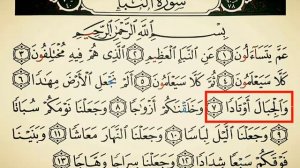 سُورَةُ النَّبَإِ
بِسْمِ اللَّهِ الرَّحْمَٰنِ الرَّحِيمِ
عَمَّ يَتَسَاءَلُونَ ۝١ عَنِ النَّبَإِ الْعَظِيمِ ۝٢ الَّذِي هُمْ فِيهِ مُخْتَلِفُونَ ۝٣
كَلَّا سَيَعْلَمُونَ ۝٤ ثُمَّ كَلَّا سَيَعْلَمُونَ ۝٥ أَلَمْ نَجْعَلِ الْأَرْضَ مِهَادًا ۝٦
وَالْجِبَالَ أَوْتَادًا ۝٧ وَخَلَقْنَاكُمْ أَزْوَاجًا ۝٨ وَجَعَلْنَا نَوْمَكُمْ سُبَاتًا
۝٩ وَجَعَلْنَا اللَّيْلَ لِبَاسًا ۝١٠ وَجَعَلْنَا النَّهَارَ مَعَاشًا ۝١١ وَبَنَيْنَا
فَوْقَكُمْ سَبْعًا شِدَادًا ۝١٢ وَجَعَلْنَا سِرَاجًا وَهَّاجًا ۝١٣